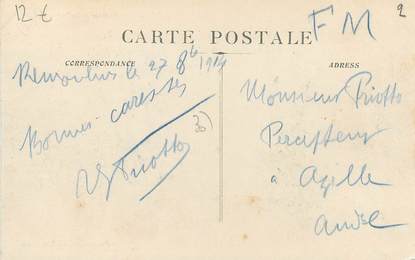 12 €
FM
2
CARTE POSTALE
CORRESPONDANCE
ADRESS
Remoulins le 27 8b 1914
Bonnes caresses
Priotto
30
Monsieur Priotto
Percepteur
à Azille
Aude